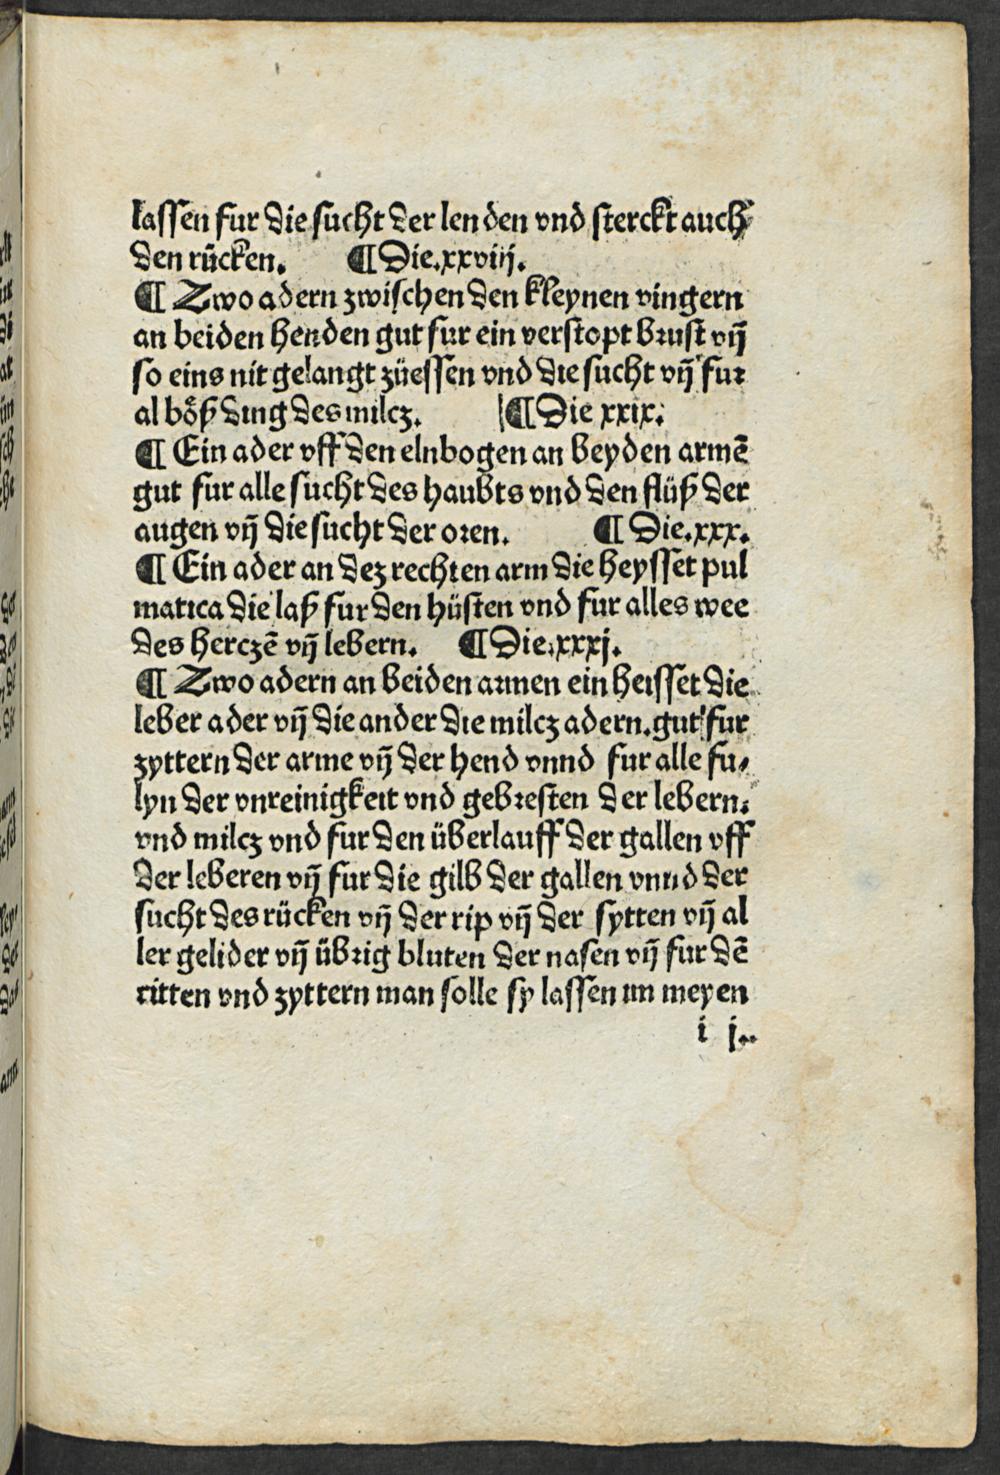 lassen fur die sucht der len den vnd sterckt auch
den rűcken. ¶ Die.xxviij.
¶ Zwo adern zwischen den kleynen vingern
an beiden henden gut fur ein verstopt brust vn̄
so eins nit gelangt züessen vnd die sucht vn̄ fur
al bőß ding des milcz. ¶ Die xxix.
¶ Ein ader vff den elnbogen an beyden armē
gut fur alle sucht des haubts vnd den flüß der
augen vn̄ die sucht der oren. ¶ Die.xxx.
¶ Ein ader an dez rechten arm die heysset pul
matica die laß fur den hüsten vnd fur alles wee
des herczē vn̄ lebern. ¶ Die.xxxj.
¶ Zwo adern an beiden armen ein heisset die
leber ader vn̄ die ander die milcz adern.gut fur
zyttern der arme vn̄ der hend vnnd fur alle fu⸗
lyn der vnreinigkeit vnd gebresten der lebern.
vnd milcz vnd fur den überlauff der gallen vff
der leberen vn̄ fur die gilb der gallen vnnd der
sucht des rücken vn̄ der rip vn̄ der sytten vn̄ al
ler gelider vn̄ übrig bluten der nasen vn̄ fur dē
ritten vnd zyttern man solle sy lassen im meyen
i j..